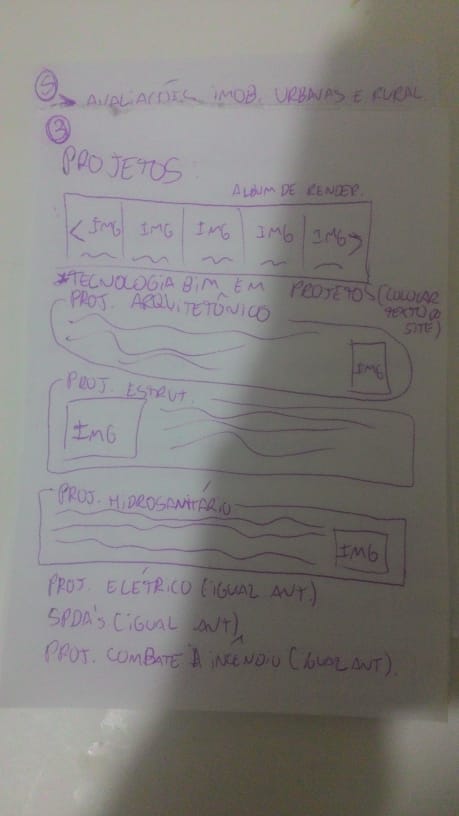 5
→ AVALIAÇÕES IMOB. URBANAS E RURAL.
3
PROJETOS:
ALBUM DE RENDER.
< IMG IMG IMG IMG IMG >
*TECNOLOGIA BIM EM PROJETOS (COLOCAR
TEXTO DO
SITE)
PROJ. ARQUITETÔNICO
IMG
PROJ. ESTRUT.
IMG
PROJ. HIDROSANITÁRIO
IMG
PROJ. ELÉTRICO (IGUAL ANT.)
SPDA'S (IGUAL ANT)
PROJ. COMBATE À INCÊNDIO (IGUAL ANT).